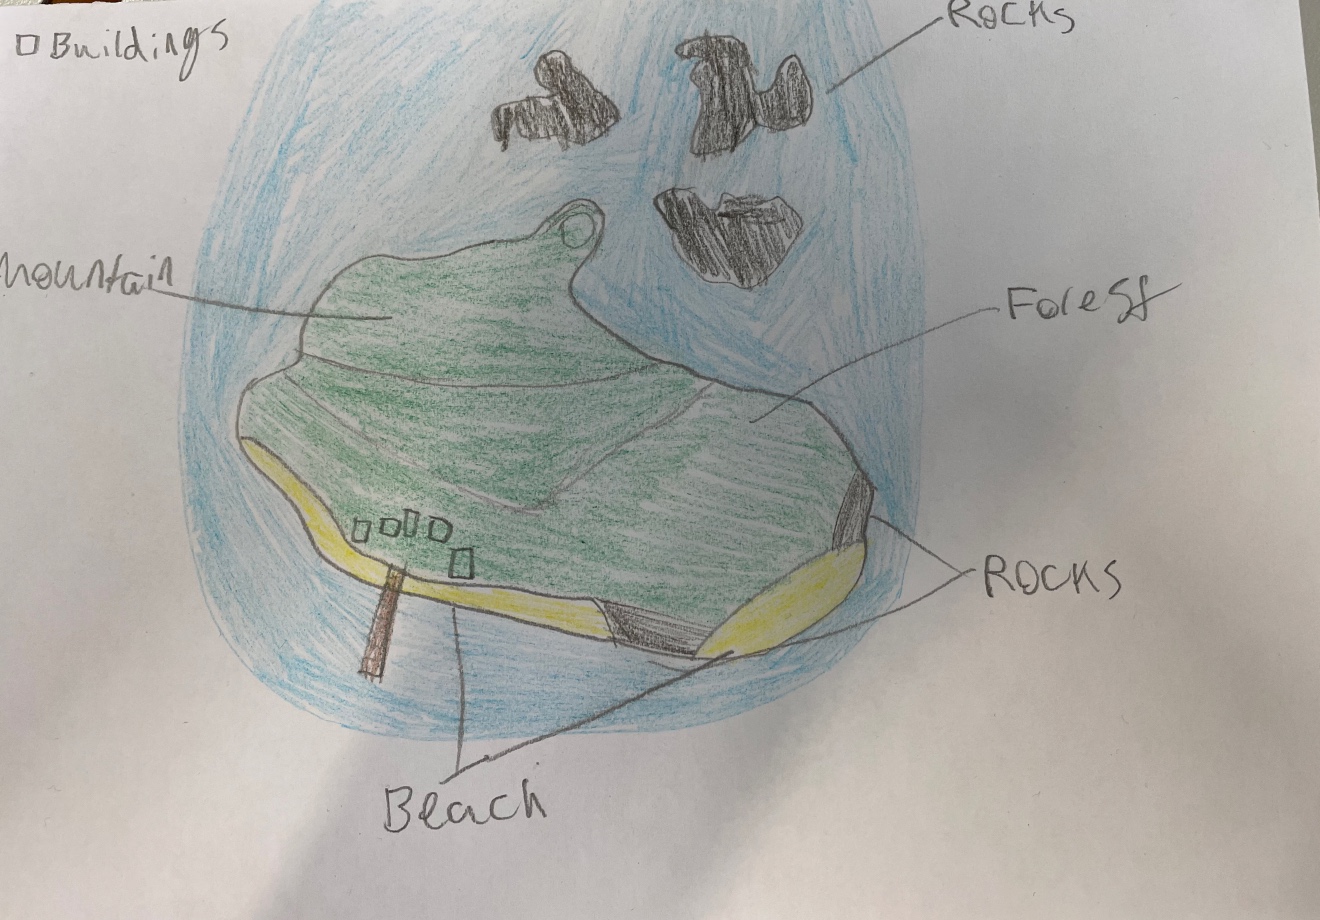 Buildings
Rocks
Mountain
Forest
Rocks
Beach